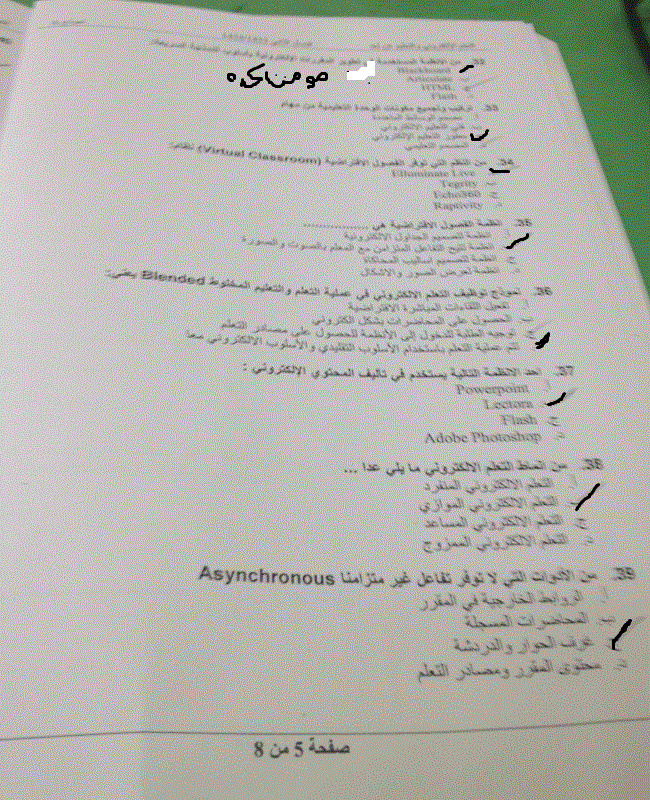 32. من الأنظمة المستخدمة في تطوير المقررات الإلكترونية بأسلوب النمذجة السريعة:
Blackboard
Articulate
HTML
Flash
33. تركيب وتجميع مكونات الوحدة التعليمية من مهام
أ. مصمم الوسائط المتعددة
التعليم الإلكتروني
التعليم الإلكتروني
المصمم التعليمي
34. من النظم التي توفر الفصول الافتراضية (Virtual Classroom) نظام:
Elluminate Live
ب. Tegrity
ج. Echo360
د. Raptivity
35. أنظمة الفصول الافتراضية هي ................
أ. أنظمة لتصميم الجداول الالكترونية
أنظمة تتيح التفاعل المتزامن مع المعلم بالصوت والصورة
ج. أنظمة لتصميم أساليب المحاكاة
د. أنظمة لعرض الصور والأشكال
36. نموذج توظيف التعلم الالكتروني في عملية التعلم والتعليم المخلوط Blended يعني:
أ. تفعيل اللقاءات المباشرة الافتراضية
ب. الحصول على المحاضرات بشكل الكتروني
ج. توجيه الطلبة للدخول إلى الأنظمة للحصول على مصادر التعلم
تتم عملية التعلم باستخدام الأسلوب التقليدي والأسلوب الالكتروني معا
37. احد الأنظمة التالية يستخدم في تأليف المحتوي الالكتروني :
أ. Powerpoint
Lectora
ج. Flash
د. Adobe Photoshop
38. من أنماط التعلم الالكتروني ما يلي عدا ...
أ. التعلم الالكتروني المنفرد
التعلم الالكتروني الموازي
ج. التعلم الالكتروني المساعد
د. التعلم الالكتروني الممزوج
39. من الأدوات التي لا توفر تفاعل غير متزامنا Asynchronous
أ. الروابط الخارجية في المقرر
ب. المحاضرات المسجلة
غرف الحوار والدردشة
د. محتوى المقرر ومصادر التعلم
صفحة 5 من 8